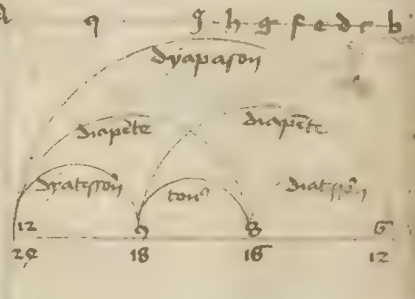 h g f e d c b
dyapason
diapēte diapēte
dyatessō tonꝰ diatessō
12 9 8 6
24 18 16 12